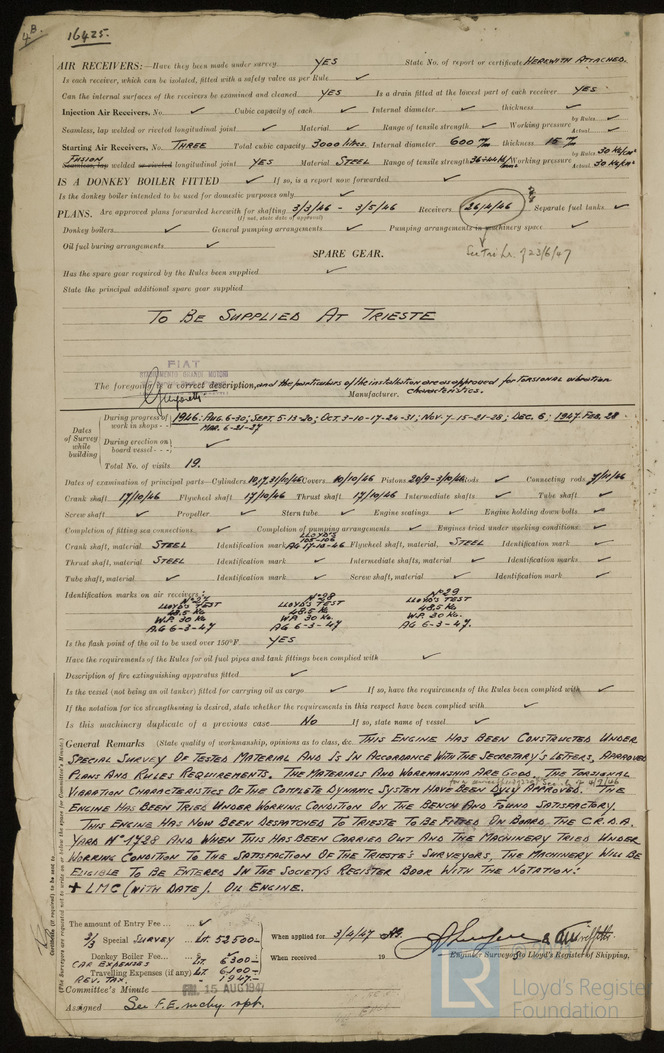 4B. 16425.
AIR RECEIVERS:—Have they been made under survey YES State No. of report or certificate HEREWITH ATTACHED.
Is each receiver, which can be isolated, fitted with a safety valve as per Rule ✓
Can the internal surfaces of the receivers be examined and cleaned YES Is a drain fitted at the lowest part of each receiver YES.
Injection Air Receivers, No. ✓ Cubic capacity of each ✓ Internal diameter ✓ thickness ✓
Seamless, lap welded or riveted longitudinal joint ✓ Material ✓ Range of tensile strength ✓ Working pressure by Rules ✓ Actual ✓
Starting Air Receivers, No. THREE Total cubic capacity 3000 litres. Internal diameter 600 m/m thickness 15 m/m
FUSION
Seamless, lap welded or riveted longitudinal joint YES Material STEEL Range of tensile strength 36÷44 Kg/mm² Working pressure by Rules 30 Kg/cm² Actual 30 Kg/cm²
IS A DONKEY BOILER FITTED ✓ If so, is a report now forwarded ✓
Is the donkey boiler intended to be used for domestic purposes only ✓
PLANS. Are approved plans forwarded herewith for shafting 3/3/46 - 3/5/46 Receivers 26/4/46 Separate fuel tanks ✓
(If not, state date of approval)
Donkey boilers ✓ General pumping arrangements ✓ Pumping arrangements in machinery space ✓
Oil fuel burning arrangements ✓
See Tri Lr. of 23/6/47
SPARE GEAR.
Has the spare gear required by the Rules been supplied ✓
State the principal additional spare gear supplied
TO BE SUPPLIED AT TRIESTE
FIAT
STABILIMENTO GRANDI MOTORI
The foregoing is a correct description, and the particulars of the installation are as approved for torsional vibration characteristics.
Manufacturer.
Dates of Survey while building
During progress of work in shops - - 1946: AUG. 6-30; SEPT. 5-13-20; OCT. 3-10-17-24-31; NOV. 7-15-21-28; DEC. 6; 1947 FEB. 28
MAR. 6-21-27
During erection on board vessel - - - ✓
Total No. of visits 19.
Dates of examination of principal parts—Cylinders 10,17,31/10/46 Covers 10/10/46 Pistons 20/9-3/10/46 Rods ✓ Connecting rods 7/11/46
Crank shaft 17/10/46 Flywheel shaft 17/10/46 Thrust shaft 17/10/46 Intermediate shafts ✓ Tube shaft ✓
Screw shaft ✓ Propeller ✓ Stern tube ✓ Engine seatings ✓ Engine holding down bolts ✓
Completion of fitting sea connections ✓ Completion of pumping arrangements ✓ Engines tried under working conditions ✓
Crank shaft, material STEEL Identification mark LLOYD'S 105-106 AG 17-10-46 Flywheel shaft, material, STEEL Identification mark ✓
Thrust shaft, material STEEL Identification mark ✓ Intermediate shafts, material ✓ Identification marks ✓
Tube shaft, material ✓ Identification mark ✓ Screw shaft, material ✓ Identification mark ✓
Identification marks on air receivers:
Nº 27 Nº 28 Nº 29
LLOYD'S TEST LLOYD'S TEST LLOYD'S TEST
48.5 Kg. 48.5 Kg. 48.5 Kg.
W.P. 30 Kg. W.P. 30 Kg. W.P. 30 Kg.
AG 6-3-47 AG 6-3-47 AG 6-3-47.
Is the flash point of the oil to be used over 150°F. YES
Have the requirements of the Rules for oil fuel pipes and tank fittings been complied with ✓
Description of fire extinguishing apparatus fitted ✓
Is the vessel (not being an oil tanker) fitted for carrying oil as cargo ✓ If so, have the requirements of the Rules been complied with ✓
If the notation for ice strengthening is desired, state whether the requirements in this respect have been complied with ✓
Is this machinery duplicate of a previous case No If so, state name of vessel ✓
General Remarks (State quality of workmanship, opinions as to class, &c. THIS ENGINE HAS BEEN CONSTRUCTED UNDER
SPECIAL SURVEY OF TESTED MATERIAL AND IS IN ACCORDANCE WITH THE SECRETARY'S LETTERS, APPROVED
PLANS AND RULES REQUIREMENTS. THE MATERIALS AND WORKMANSHIP ARE GOOD. THE TORSIONAL
VIBRATION CHARACTERISTICS OF THE COMPLETE DYNAMIC SYSTEM HAVE BEEN DULY APPROVED. THE
ENGINE HAS BEEN TRIED UNDER WORKING CONDITION ON THE BENCH AND FOUND SATISFACTORY.
THIS ENGINE HAS NOW BEEN DESPATCHED TO TRIESTE TO BE FITTED ON BOARD THE C.R.D.A.
YARD Nº 1728 AND WHEN THIS HAS BEEN CARRIED OUT AND THE MACHINERY TRIED UNDER
WORKING CONDITION TO THE SATISFACTION OF THE TRIESTE'S SURVEYORS, THE MACHINERY WILL BE
ELIGIBLE TO BE ENTERED IN THE SOCIETY'S REGISTER BOOK WITH THE NOTATION:
+ LMC (WITH DATE). OIL ENGINE.
Certificate (if required) to be sent to
(The Surveyors are requested not to write on or below the space for Committee's Minute.)
The amount of Entry Fee ... ✓
2/3 Special SURVEY ... Lit. 52500=
Donkey Boiler Fee...
CAR EXPENSES Lit. 6300=
Travelling Expenses (if any) Lit. 6100=
REV. TAX. 1947=
When applied for 3/4/47
When received 19
Engineer Surveyors to Lloyd's Register of Shipping.
Committee's Minute FRI. 15 AUG 1947
Assigned See F.E. mchy rpt.
Lloyd's Register
Foundation